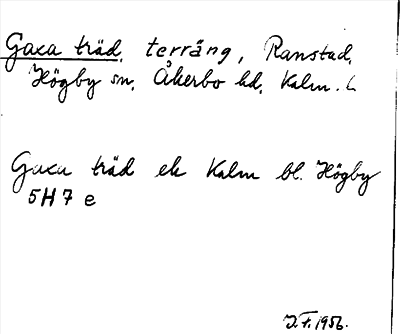 Gaxa träd, terräng, Ranstad,
Högby sn, Åkerbo hd, Kalm. L
Gaxa träd ek Kalm bl. Högby
5H7 e
J.F. 1956.